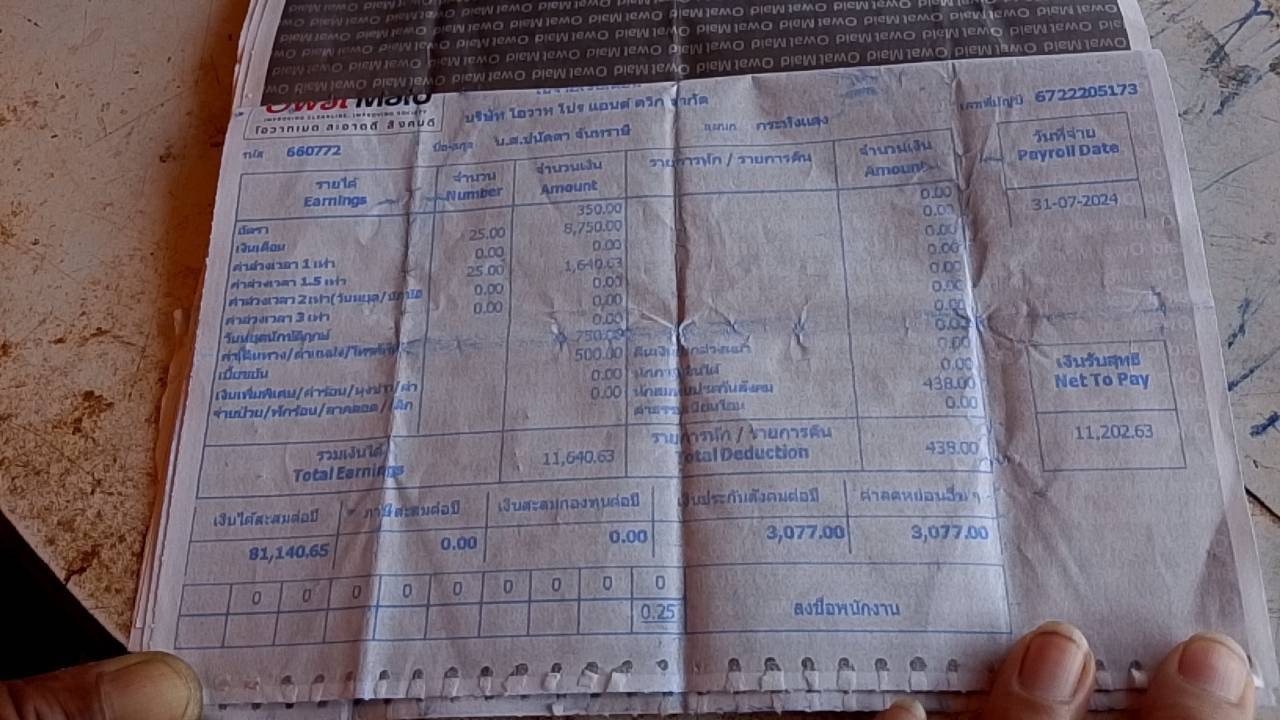 Owat Maid
IMPROVING CLEANLINE, IMPROVING SOCIETY
โอวาทเมด สะอาดดี สังคมดี
บริษัท โอวาท โปร แอนด์ ควิก จำกัด
เลขที่บัญชี 6722205173
รหัส 660772
ชื่อ-สกุล น.ส.ปนัดดา จันทราษี
แผนก กระทิงแดง
วันที่จ่าย
Payroll Date
31-07-2024
รายได้
Earnings
จำนวน
Number
จำนวนเงิน
Amount
รายการหัก / รายการคืน
จำนวนเงิน
Amount
อัตรา 350.00 0.00
เงินเดือน 25.00 8,750.00 0.00
ค่าล่วงเวลา 1 เท่า 0.00 0.00 0.00
ค่าล่วงเวลา 1.5 เท่า 25.00 1,640.63 0.00
ค่าล่วงเวลา 2 เท่า(วันหยุด/ 0.00 0.00 0.00
ค่าล่วงเวลา 3 เท่า 0.00 0.00 0.00
วันหยุดนักขัติฤกษ์ 0.00 0.00
ค่าเดินทาง/ 750.00 0.00
เบี้ยขยัน 500.00 0.00
เงินเพิ่มพิเศษ/ค่าร้อน/ 0.00 หักสมทบประกันสังคม 438.00
0.00 ค่าธรรมเนียมโอน 0.00
รวมเงินได้
Total Earnings
11,640.63
รายการหัก / รายการคืน
Total Deduction
438.00
เงินรับสุทธิ
Net To Pay
11,202.63
เงินได้สะสมต่อปี ภาษีสะสมต่อปี เงินสะสมกองทุนต่อปี เงินประกันสังคมต่อปี ค่าลดหย่อนอื่น ๆ
81,140.65 0.00 0.00 3,077.00 3,077.00
0 0 0 0 0 0 0 0 0
0.25
ลงชื่อพนักงาน